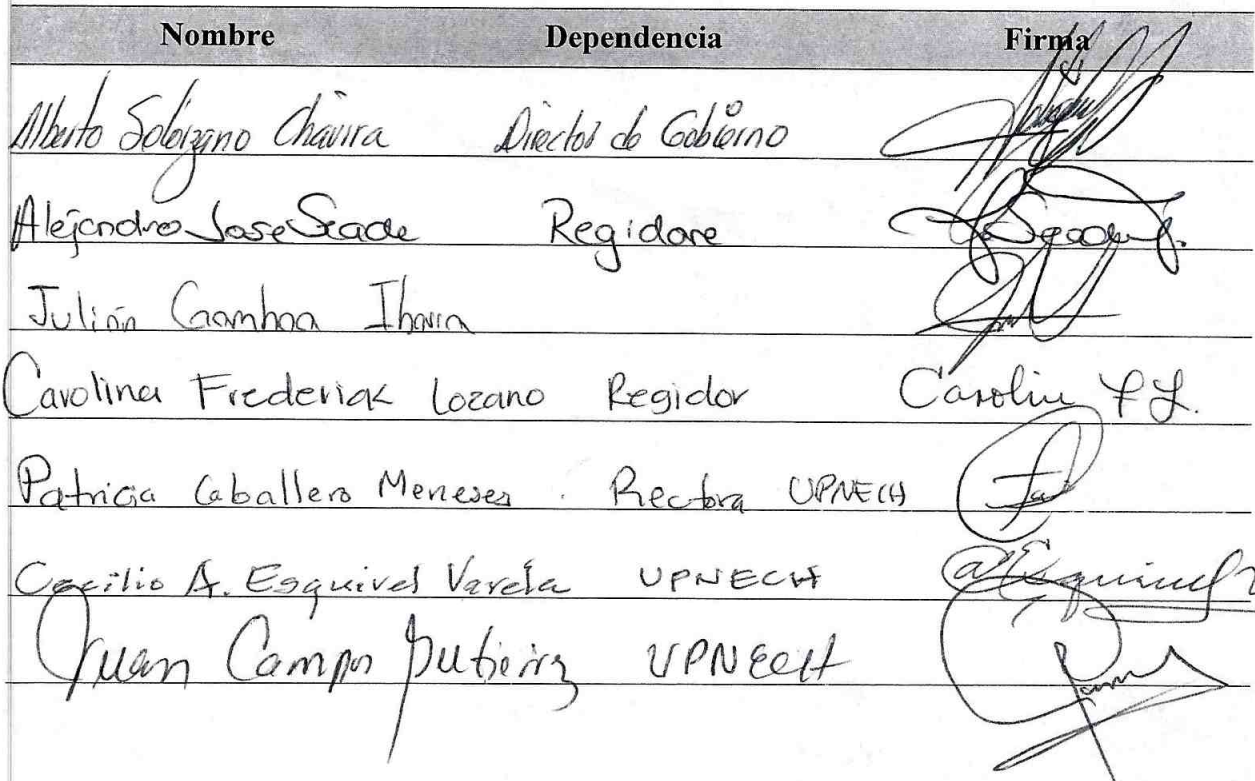 Nombre Dependencia Firma
Alberto Solórzano Chávira Director de Gobierno
Alejandro Jose Seade Regidore
Julián Gamboa Ibarra
Carolina Frederick Lozano Regidor Carolin F L.
Patricia Caballero Meneses. Rectora UPNECH
Cecilio A. Esquivel Varela UPNECH
Juan Campos Gutiérrez UPNECH